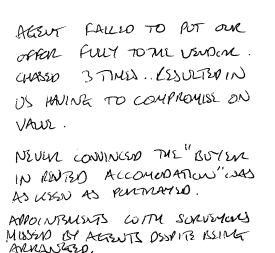 AGENT FAILED TO PUT OUR
OFFER FULLY TO THE VENDOR.
CHASED 3 TIMES.. RESULTED IN
US HAVING TO COMPROMISE ON
VALUE.
NEVER CONVINCED THE "BUYER
IN RENTED ACCOMODATION" WAS
AS KEEN AS PORTRAYED.
APPOINTMENTS WITH SURVEYORS
MISSED BY AGENTS DESPITE BEING
ARRANGED.